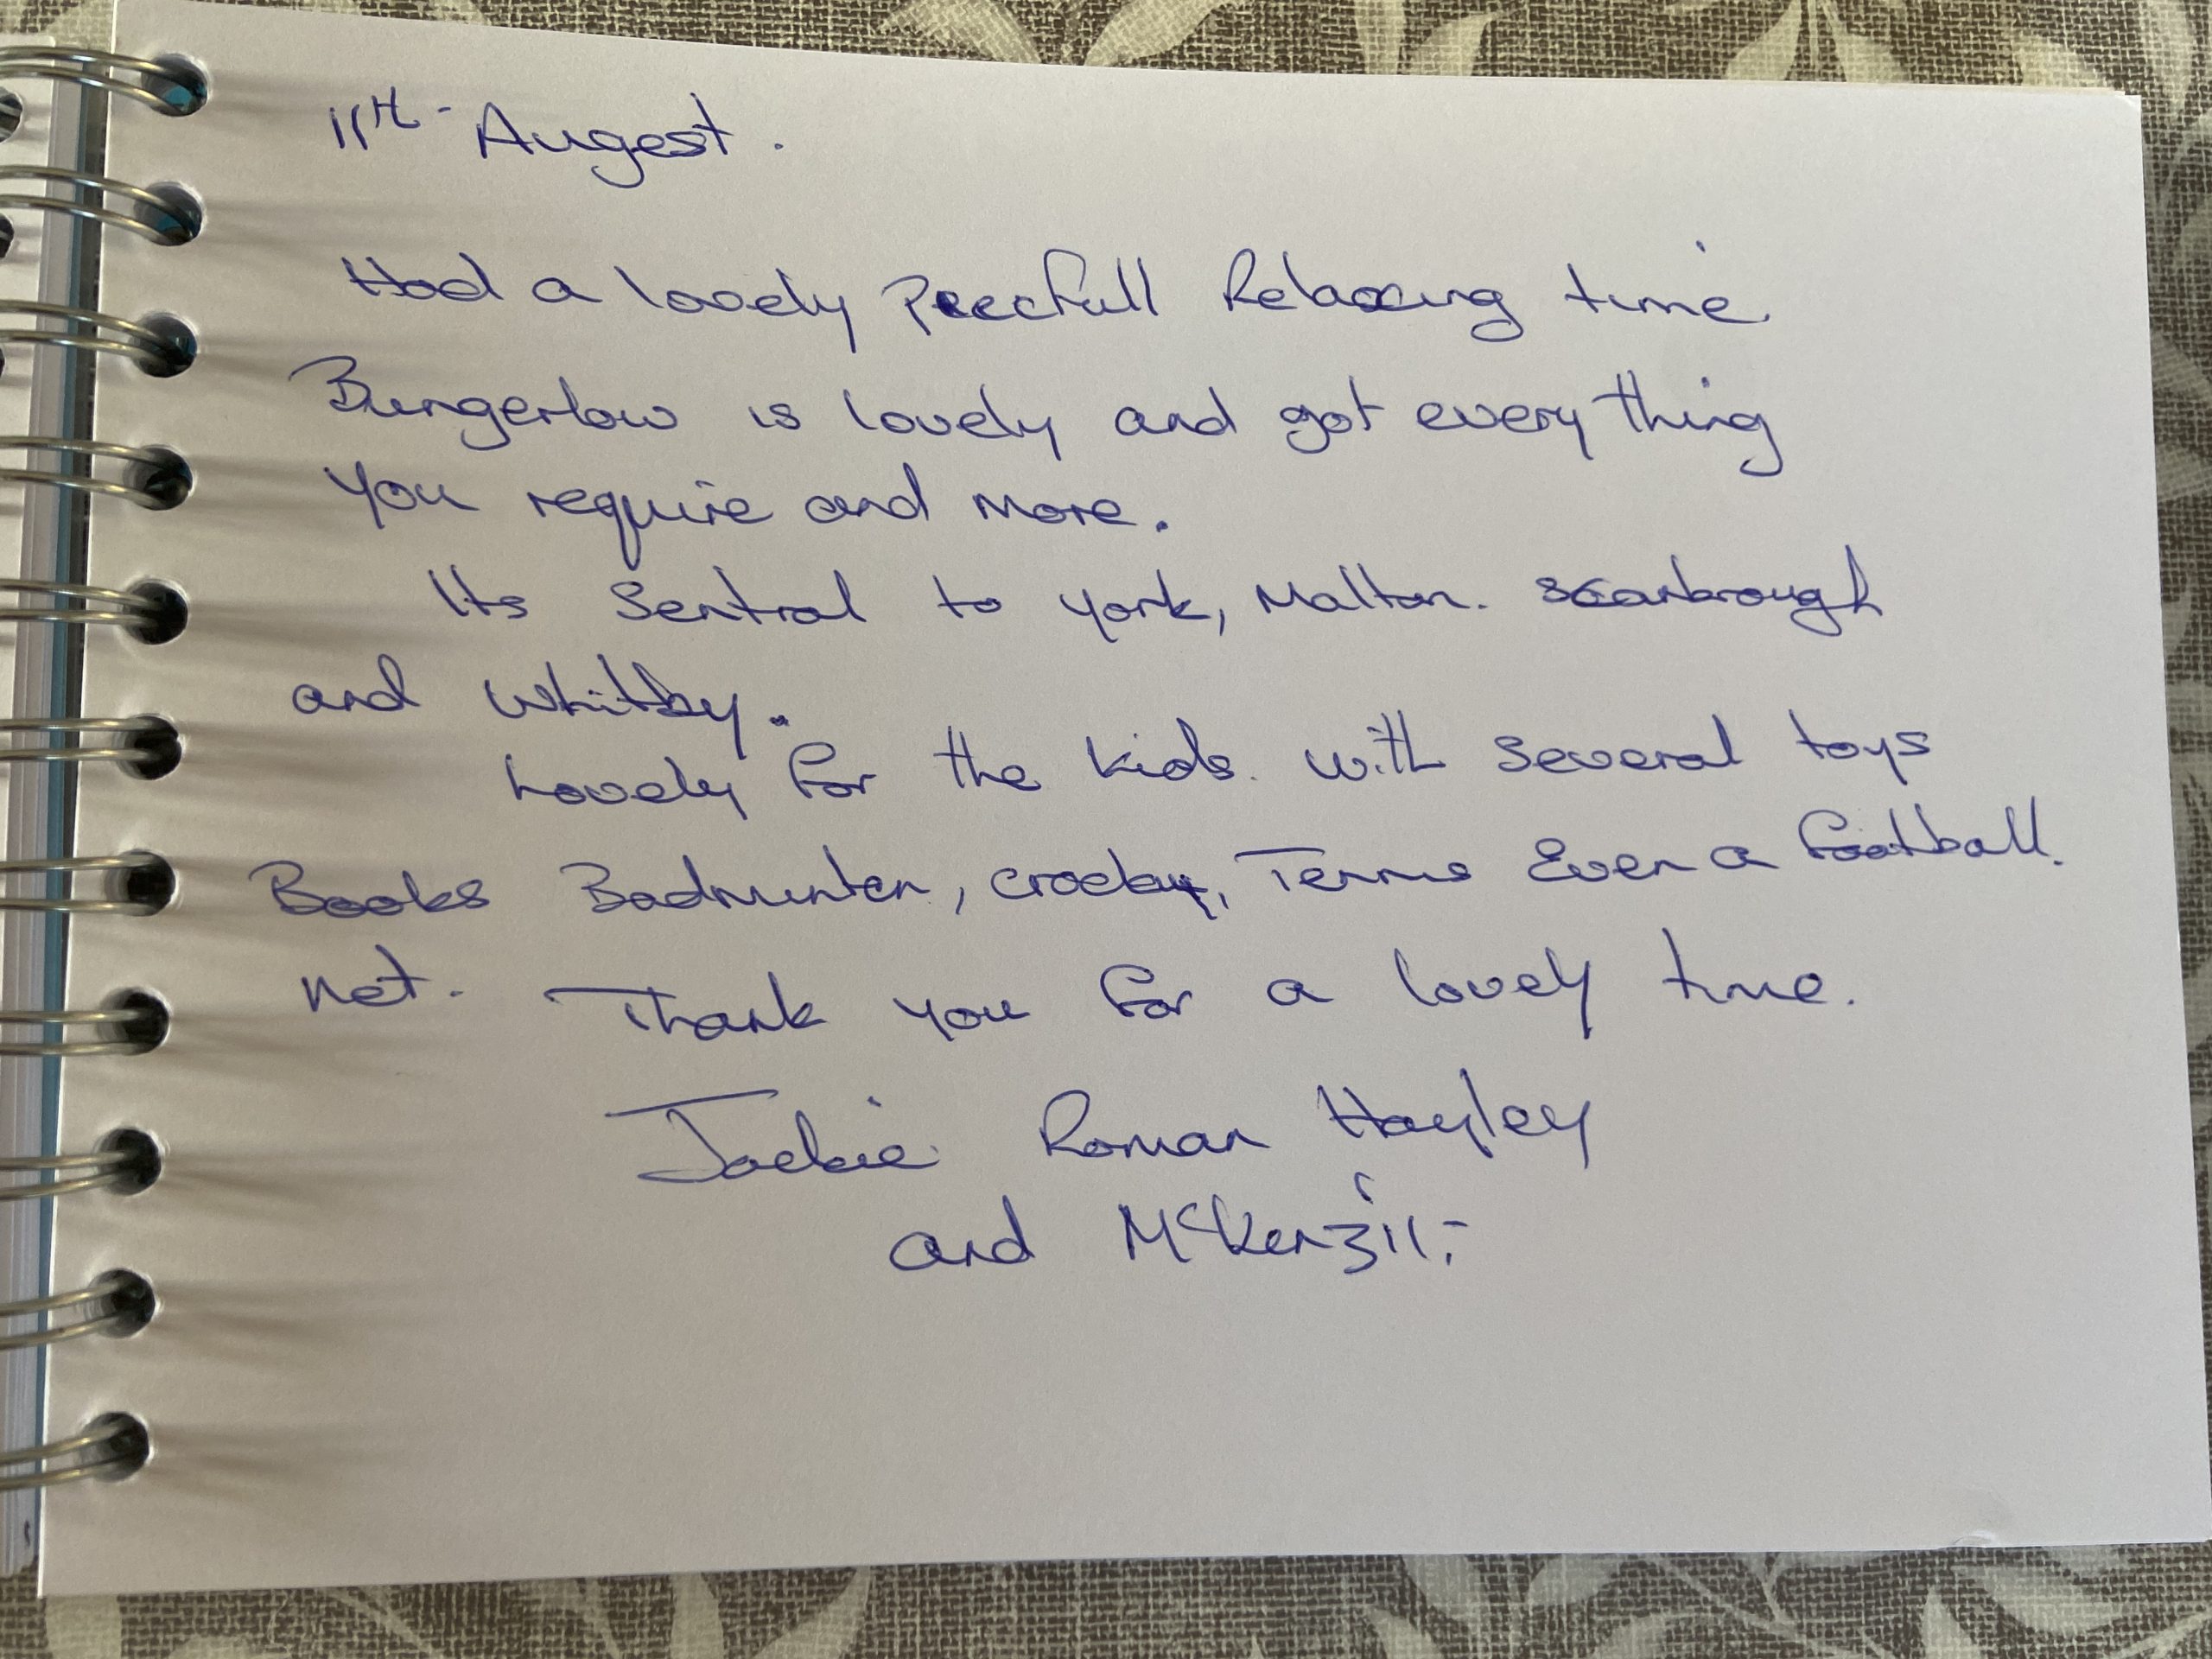 11th - Augest.
Had a lovely Peecfull Relaxing time
Bungerlow is lovely and got every thing
you require and more.
Its Sentral to york, Malton. Scarbrough
and Whitby.
Lovely for the kids. with several toys
Books Badminten, Tennis Even a football.
net. Thank you for a lovely time.
Jackie Roman Hayley
and